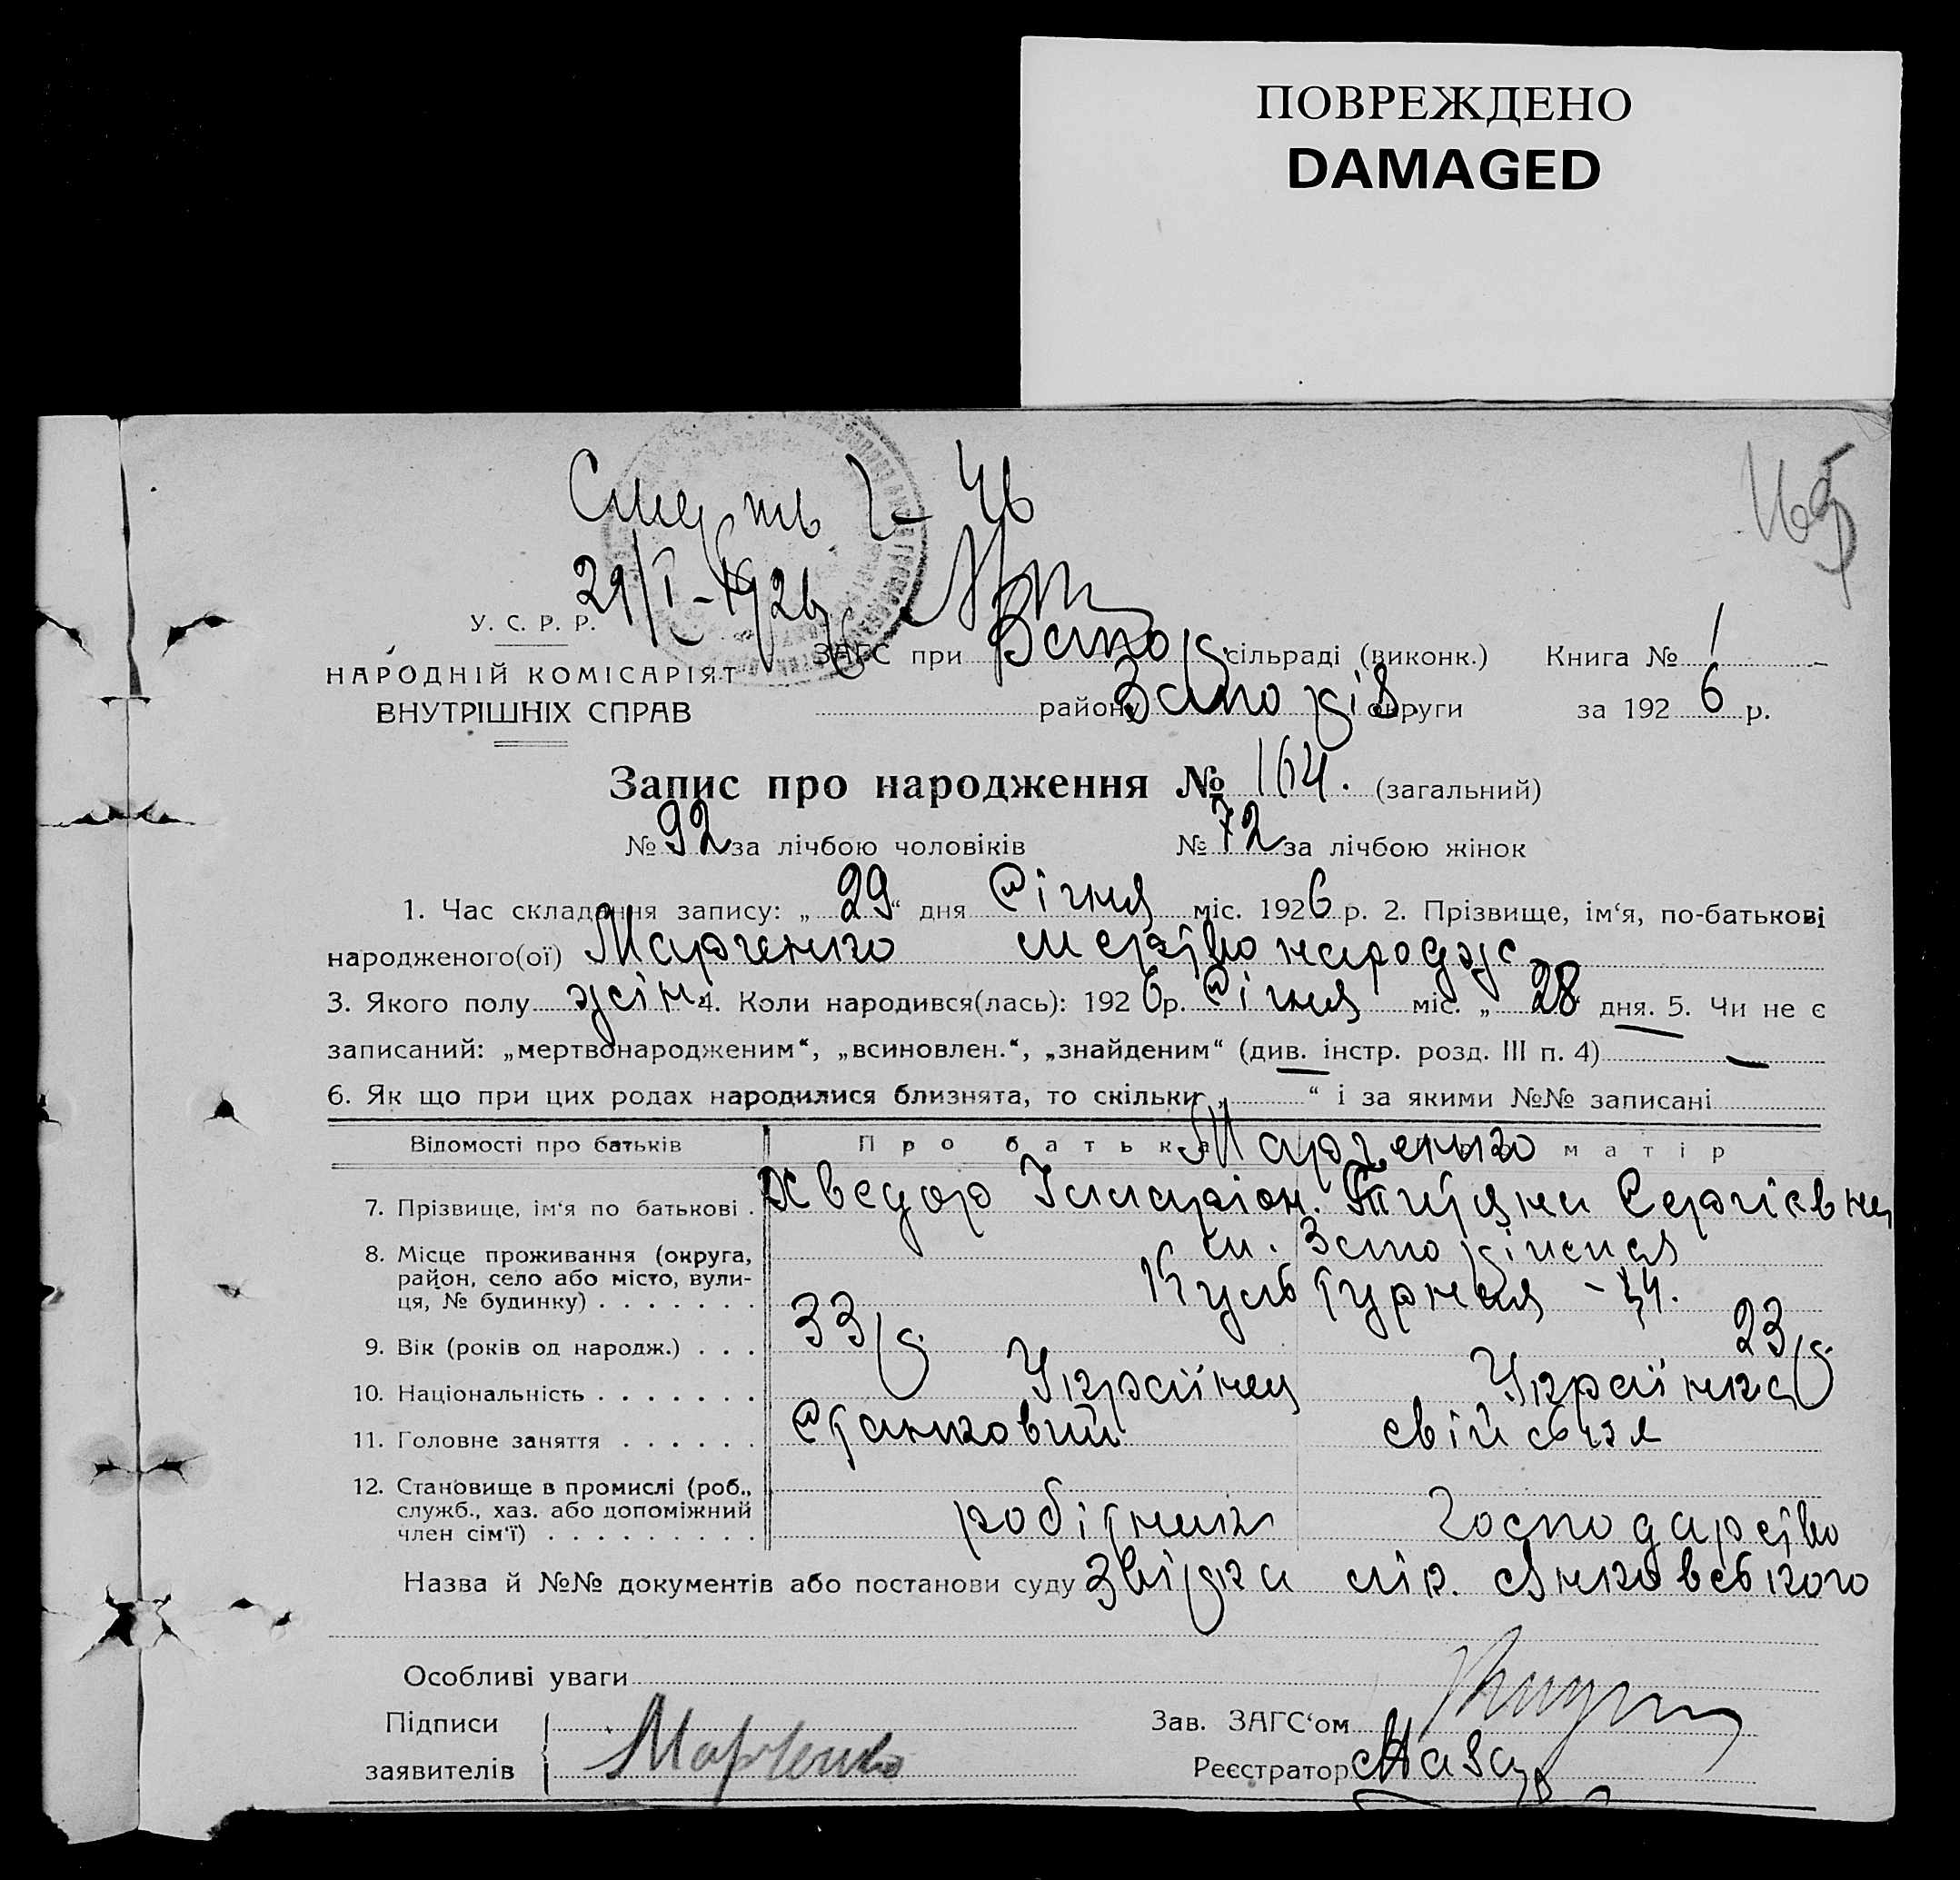 ПОВРЕЖДЕНО
DAMAGED
165
Смерть 2 - 46
29/I - 1926
У. С. Р. Р.
НАРОДНІЙ КОМІСАРІЯТ
ВНУТРІШНІХ СПРАВ
ЗАГС при Запор. сільраді (виконк.) Книга № 1
району Запоріз. округи за 1926 р.
Запис про народження № 164. (загальний)
№ 92 за лічбою чоловіків № 72 за лічбою жінок
1. Час складання запису: „29“ дня Січня міс. 1926 р. 2. Прізвище, ім‘я, по-батькові
народженого(ої) Марченко мертвонародж.
3. Якого полу жін. 4. Коли народився(лась): 1926 р. Січня міс. „28 дня. 5. Чи не є
записаний: „мертвонародженим“, „всиновлен.“, „знайденим“ (див. інстр. розд. III п. 4) —
6. Як що при цих родах народилися близнята, то скільки „ “ і за якими №№ записані
Відомості про батьків Про батька матір
Марченько
7. Прізвище, ім‘я по батькові . Хведор Іларіон. Титяни Сергієвни
8. Місце проживання (округа, район, село або місто, вулиця, № будинку) . . . . . . . м. Запоріжжя
Культурная -
9. Вік (років од народж.) . . . 33 р. 23 р.
10. Національність . . . . . . . Українец Українка
11. Головне заняття . . . . . . Станковий
12. Становище в промислі (роб., служб., хаз. або допоміжний член сім‘ї) . . . . . . . . . робітник Господарство
Назва й №№ документів або постанови суду Звідка лік. Янковського
Особливі уваги
Підписи заявителів Марченко
Зав. ЗАГС‘ом
Реєстратор